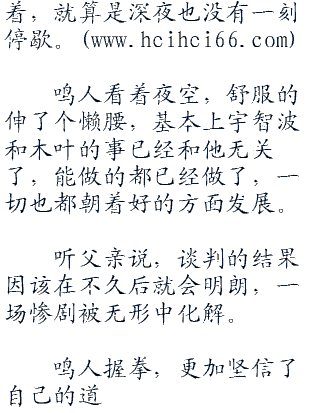 着，就算是深夜也没有一刻
停歇。(www.hcihci66.com)
鸣人看着夜空，舒服的
伸了个懒腰，基本上宇智波
和木叶的事已经和他无关
了，能做的都已经做了，一
切也都朝着好的方面发展。
听父亲说，谈判的结果
因该在不久后就会明朗，一
场惨剧被无形中化解。
鸣人握拳，更加坚信了
自己的道